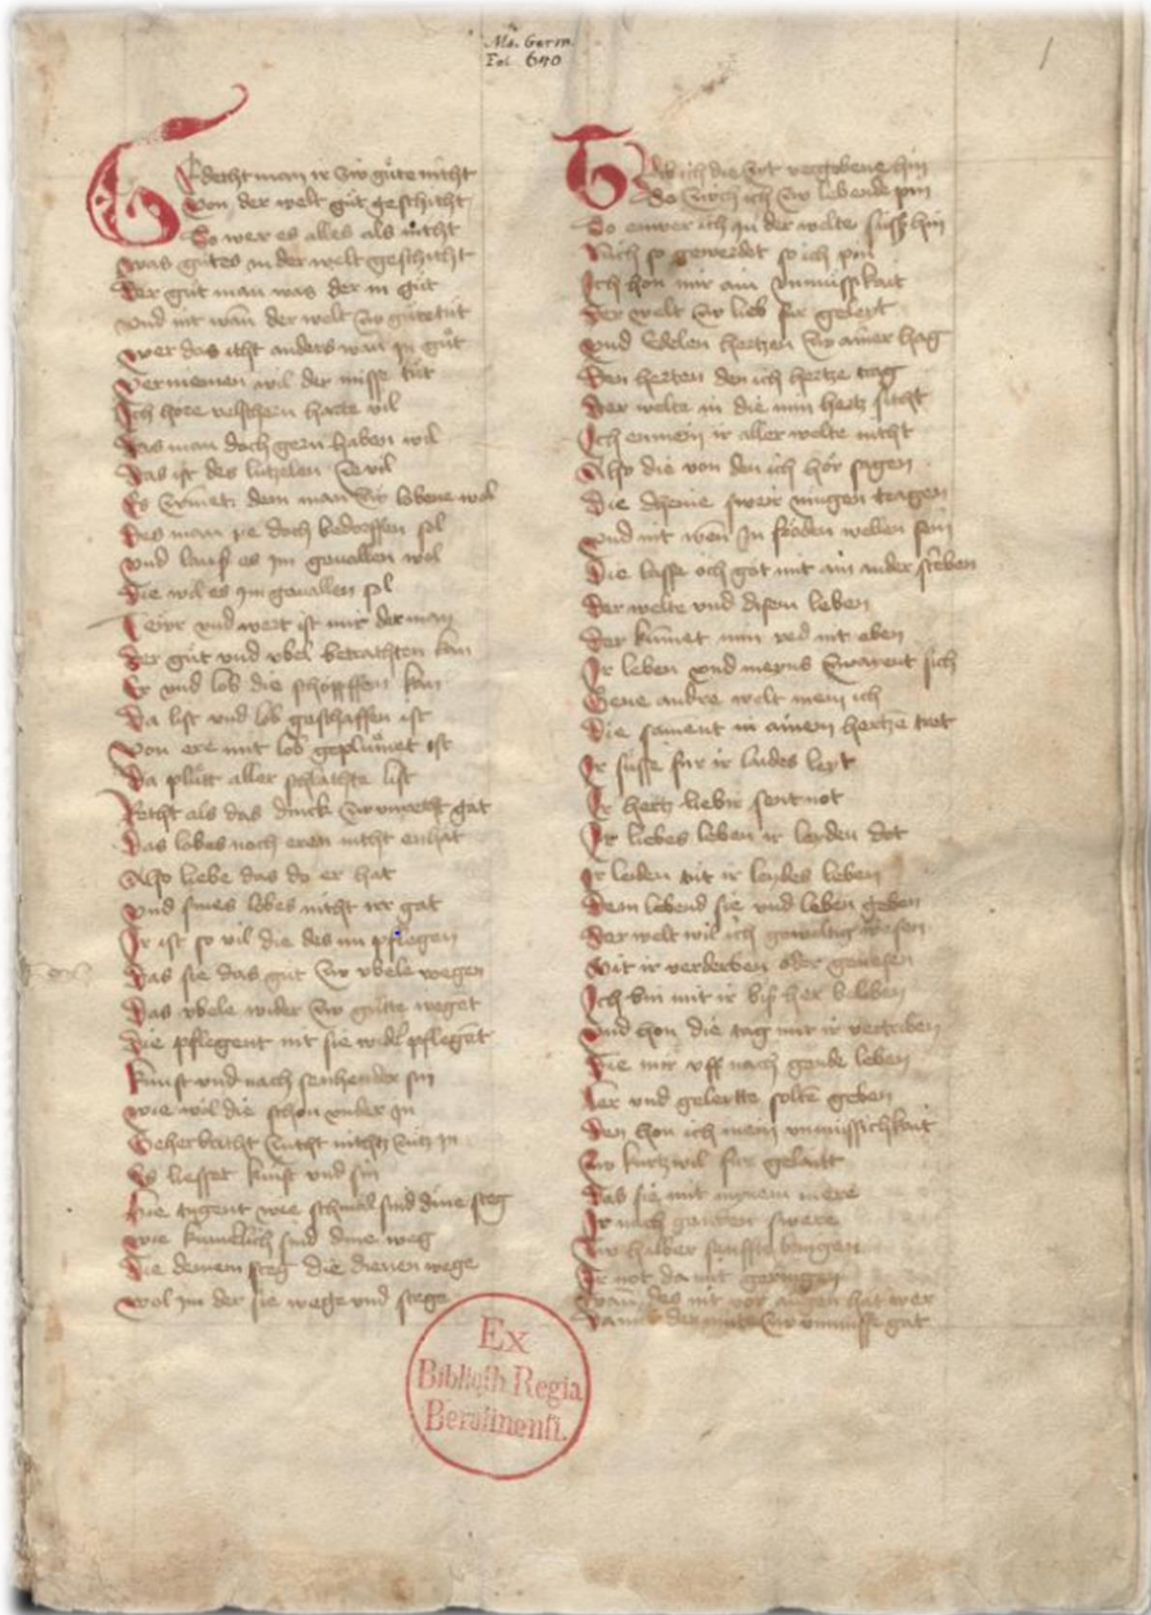 Ms. Germ.
Fol. 640
1
Gedecht man ir zu gůte nicht
Von der welt gůt geschicht
So wer es alles als nicht
was gůtes in der welt geschicht
Der gůt man was der in gůt
Vnd nit wan der welt zu gůte tůt
wer das icht anders wan in gůt
vernemen wil der misse tůt
Ich hore velschen harte vil
Das man doch gern haben wil
Das ist des lutzelen ze vil
Es zimet dem man zu lobene wol
Des man ye doch bedorffen sol
vnd lauß es im geuallen wol
Die wil es im geuallen sol
Teurr vnd wert ist mir der man
Der gůt vnd vbel betrachten kan
Er vnd lob die schopffen kan
Da list vnd lob geschaffen ist
Von ere mit lob geplumet ist
Da plutt aller schlachte list
Recht als das dinck zu vnrecht gat
Das lobes noch eren nicht enhat
Also liebe das do er hat
vnd sines lobes nicht irr gat
Ir ist so vil die des nu pflegen
Das sie das gůt zu vbele wegen
Das vbele wider zu gutte weget
Die pflegent nit sie wider pfleget
Kunst vnd nach sehender sin
wie wol die schon vnder in
Geherbricht nicht
Es liesset kunst vnd sin
Hie tugent wie schmal sind dine steg
wie kumerlich sind dine weg
Die deinem steg die deinen wege
wol im der sie wege vnd stege
Trib ich die zit vergebene hin
So zurch ich zu lebende pin
So enwer ich in der welte suss hin
Nich so gewerdet so ich pin
Ich hon mir ain vnmusskait
Der welt zu lieb fur geleit
vnd Edelen hertzen zu ainer hag
Den herten den ich hertze trag
Der welte in die min hertz sicht
Ich enmein ir aller welte nicht
Also die von den ich hör sagen
Die swer mugen tragen
vnd nit wen In fröden wellen sein
Die lasse och got mit ain ander streben
Der welte vnd disem leben
Der kumet min red nit eben
Ir leben vnd meyns zwaient sich
Gene andre welt mein ich
Die sament in ainem hertze tret
Ir susse fur ir laides leyt
Ir hertz liebir sent not
Ir liebes leben ir leyden dot
Ir leiden tůt ir leydes leben
Dem lebend sie vnd leben geben
Der welt wil ich gewaltig wesen
Mit ir verderben oder genesen
Ich bin mit ir biß her beliben
vnd hon die tag mit ir vertriben
Die mir vff nach gende leben
Ler vnd gelertte solte geben
Den hon ich mein vnmussichkait
Zu kurtzwil fur gelait
Das sie mit mynem mere
Ir nach ganden swere
Zu halber sanffte bringen
Ir not da mit geringen
Wan des nit vor augen hat wer
Da mit der zu vnmusse gat
Ex
Biblioth. Regia
Berolinensi.